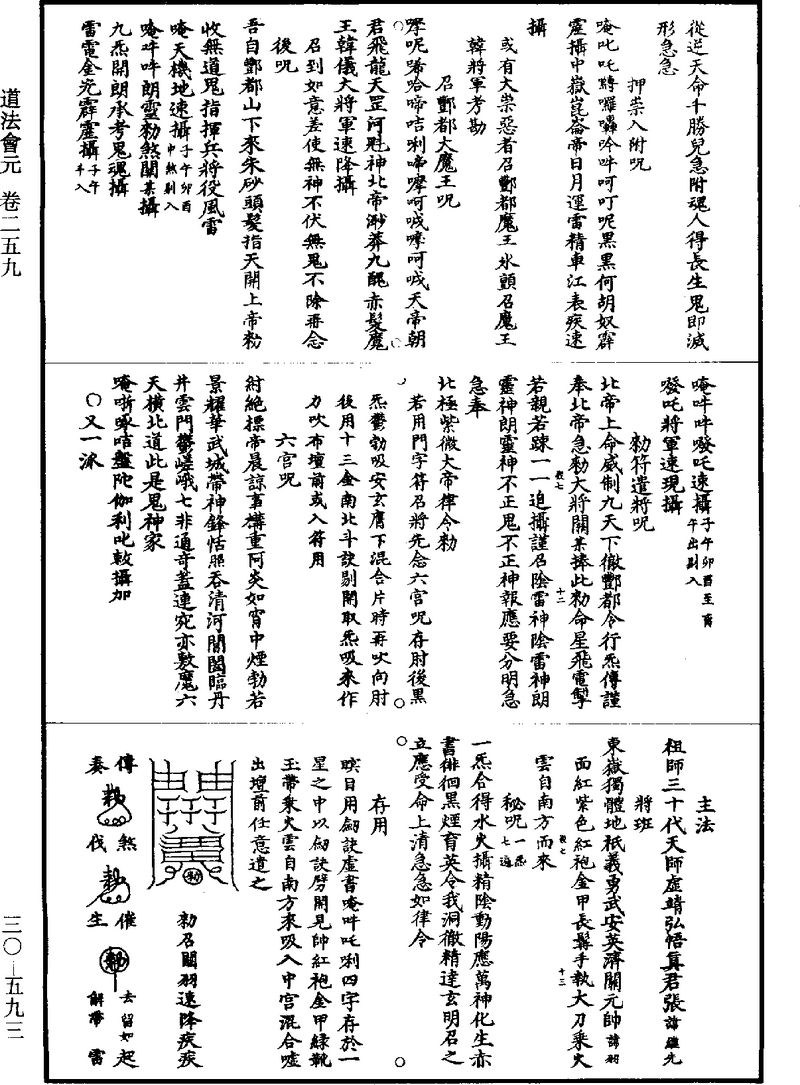 道法會元 卷二五九
三〇—五九三
從逆天命千勝兒急附魂人得長生鬼即滅
形急急
押祟入附呪
唵吒吒 吽呵叮呢黑黑何胡奴霹
靂攝中嶽崑崙帝日月運雷精車江表疾速
攝
或有大祟惡者召酆都魔王永顫召魔王
韓將軍考勘
召酆都大魔王呪
㖿呢唏哈啼咭唎啼㖿呵㖿呵天帝朝
君飛龍天罡河魁神北帝渺莽九醜赤髮魔
王韓儀大將軍速降攝
召到如意差使無神不伏無鬼不除再念
後呪
吾自酆都山下來朱砂頭髮指天開上帝勑
收無道鬼指揮兵將役風雷
唵天機地速攝子午卯酉中煞剔入
唵吽吽朗靈勑煞關某攝
九炁開朗承考鬼魂攝
雷電金光霹靂攝子午斗入
唵吽吽發吒速攝子午卯酉至 午出剔入
發吒將軍速現攝
勑符遣將呪
北帝上命威制九天下徹酆都令行炁傳謹
奉北帝急勑大將關某捧此勑命星飛電掣
若親若踈一一追攝謹召陰雷神陰雷神朗
靈神朗靈神不正鬼不正神報應要分明急
急奉
北極紫微大帝律令勑
若用鬥字符召將先念六宫呪存肘後黑
炁鬱勃吸安玄膺下混合片時再吹向肘
後用十三金南北斗訣剔開取炁吸來作
力吹布壇前或入符用
六宫呪
紂絶摽帝晨諒事構重阿炎如霄中煙勃若
景耀華武城帶神鋒恬照吞清河閶闔臨丹
井雲門鬱嵯峨七非通奇蓋連宛亦敷魔六
天横北道此是鬼神家
唵哳咭盤陀伽利叱敕攝加
〇又一派
主法
祖師三十代天師虚靖弘悟真君張諱繼先
將班
東嶽獨體地祇義勇武安英濟關元帥諱羽
面紅紫色紅袍金甲長髯手執大刀乘火
雲自南方而來
秘呪一炁七遍
一炁合得水火攝精陰動陽應萬神化生亦
書徘徊黑煙育英令我洞徹精達玄明召之
立應受命上清急急如律令
存用
瞑目用劔訣虚書唵吽吒唎四字存於一
星之中以劔訣劈開見帥紅袍金甲緑靴
玉帶乘火雲自南方來吸入中宫混合噓
出壇前任意遣之
勑召關羽速降疾疾
傳煞催去留如起
奏伐生解帶雷